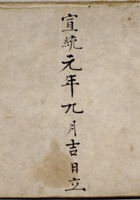 宣統元年九月吉日立